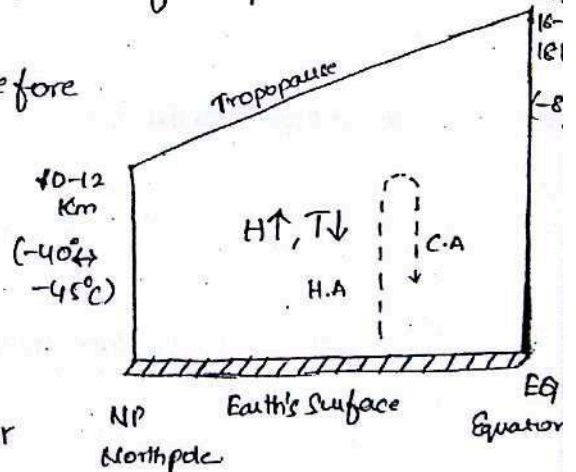 efore
Tropopause
16-
181
(-8
10-12
Km
(-40°↔
-45°C)
H↑, T↓
C.A
H.A
r
NP
Earth's Surface
EQ
Northpole
Equator